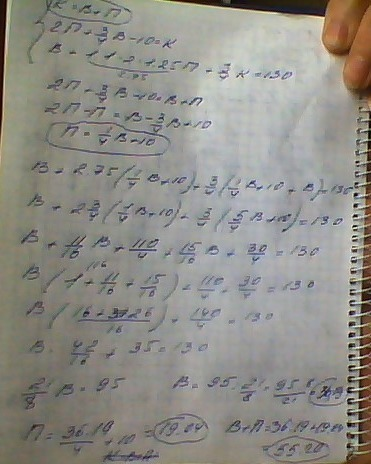 K = B + П
2П + 3/4 B - 10 = K
B + 1.1 · 2 · 1.25 П + 3/4 K = 130
2.75
2П + 3/4 B - 10 = B + П
2П - П = B - 3/4 B + 10
П = 1/4 B + 10
B + 2.75 (1/4 B + 10) + 3/4 (1/4 B + 10 + B) = 130
B + 2 3/4 (1/4 B + 10) + 3/4 (5/4 B + 10) = 130
B + 11/16 B + 110/4 + 15/16 B + 30/4 = 130
B (1 + 11/16 + 15/16) + 110/4 + 30/4 = 130
B ( 26/16 ) + 140/4 = 130
B · 42/16 + 35 = 130
21/8 B = 95 B = 95 : 21/8 = 95 · 8/21 = 36.19
П = 36.19/4 + 10 = 19.04 B + П = 36.19 + 19.04
= 55.20